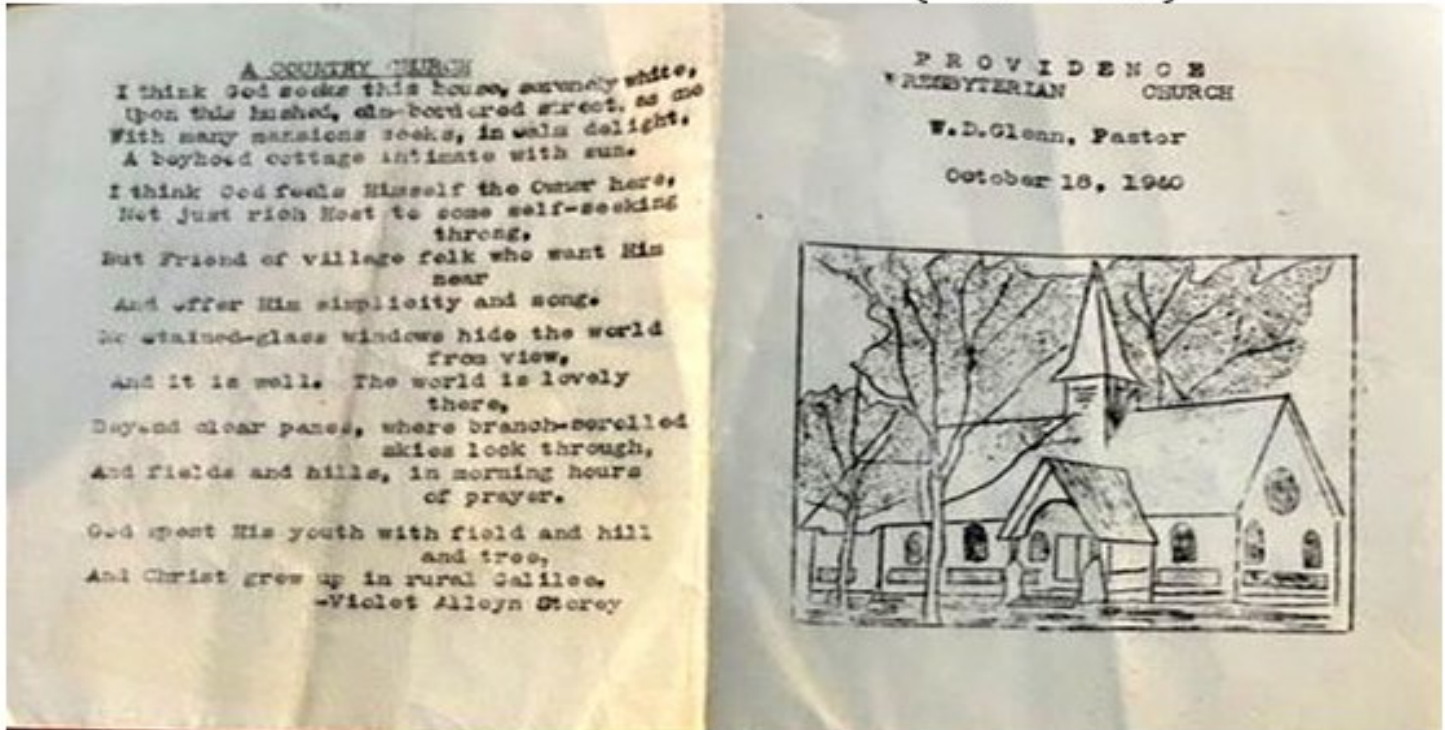 A COUNTRY CHURCH
I think God seeks this house, serenely white,
Upon this hushed, elm-bordered street, as one
With many mansions seeks, in calm delight,
A boyhood cottage intimate with sun.
I think God feels Himself the Owner here,
Not just rich Host to some self-seeking
throng,
But Friend of village folk who want Him
near
And offer Him simplicity and song.
No stained-glass windows hide the world
from view,
And it is well. The world is lovely
there,
Beyond clear panes, where branch-scrolled
skies look through,
And fields and hills, in morning hours
of prayer.
God spent His youth with field and hill
and tree,
And Christ grew up in rural Galilee.
-Violet Alleyn Storey
PROVIDENCE
PRESBYTERIAN CHURCH
W.D.Glenn, Pastor
October 18, 1940